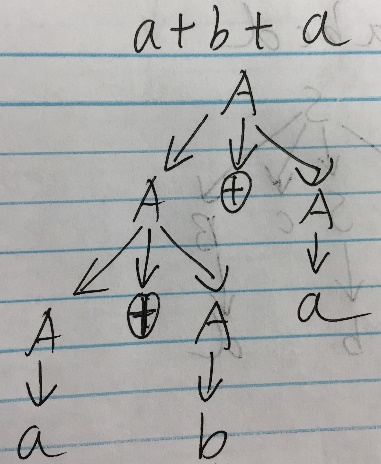 a + b + a
A
A ⊕ A
A ⊕ A a
a b